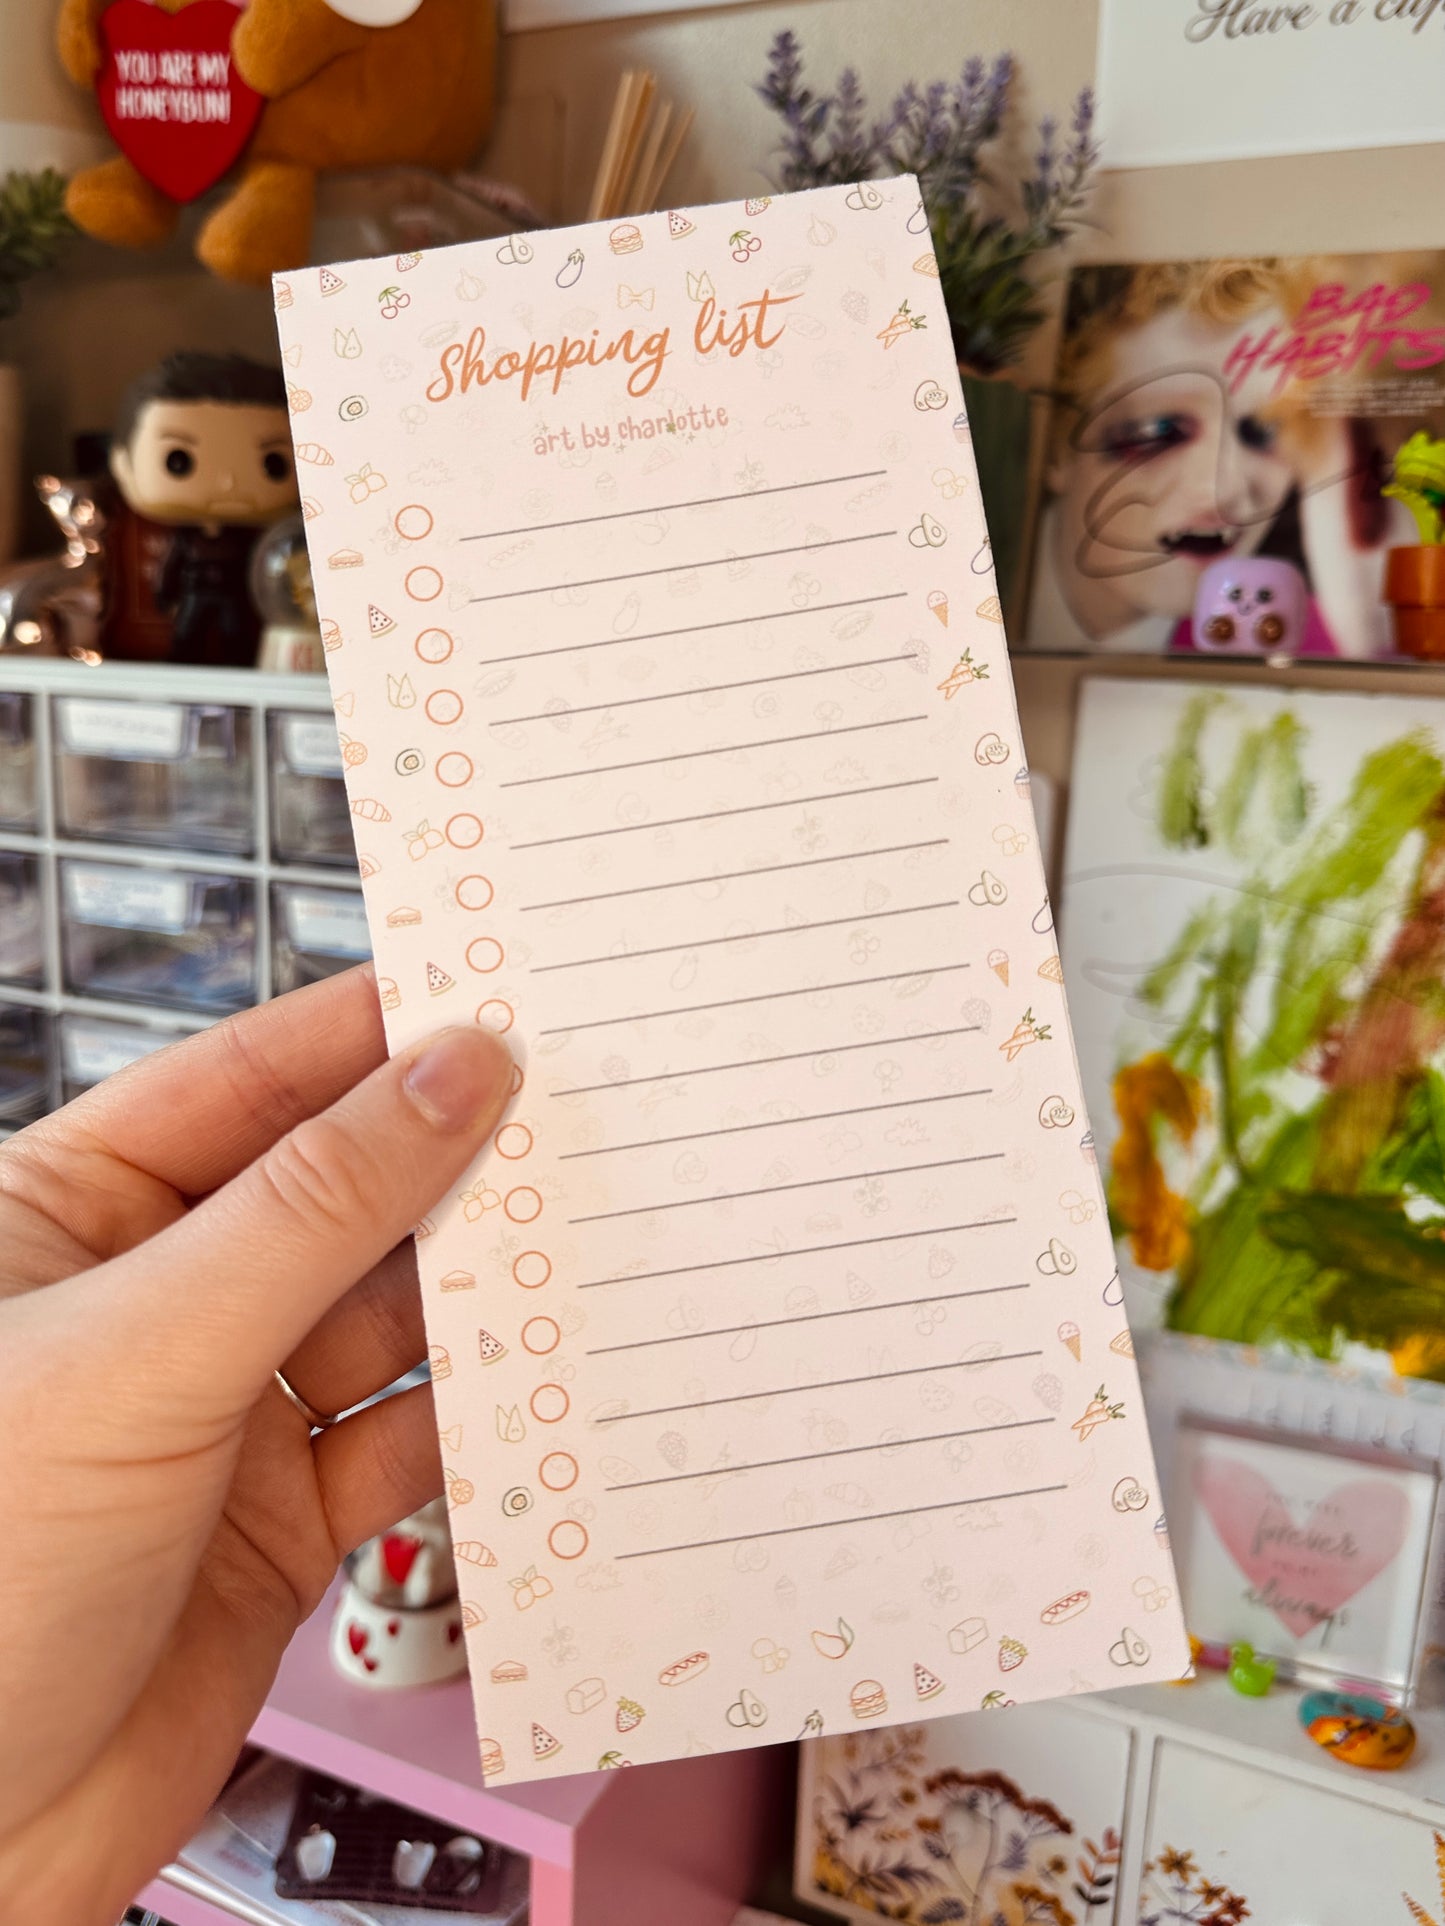 YOU ARE MY
HONEYBUN!
Have a cup
Shopping list
art by charlotte
BAD
HABITS
forever
always